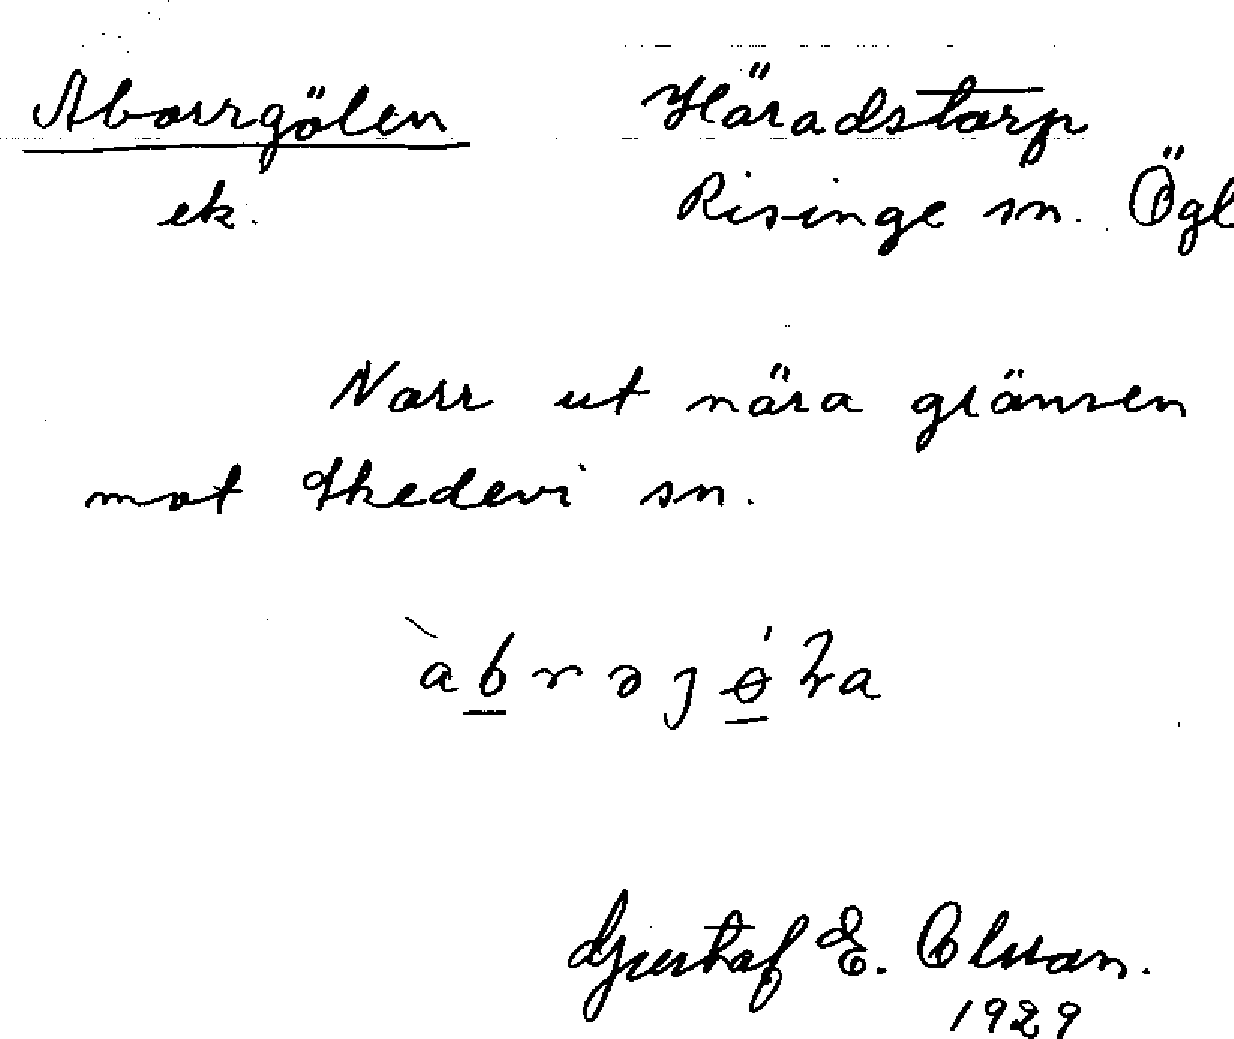 Aborrgölen
Häradstorp
ek.
Risinge sn. Ögl
Norr ut nära gränsen
mot Skedevi sn.
Gustaf E. Olsson.
1929